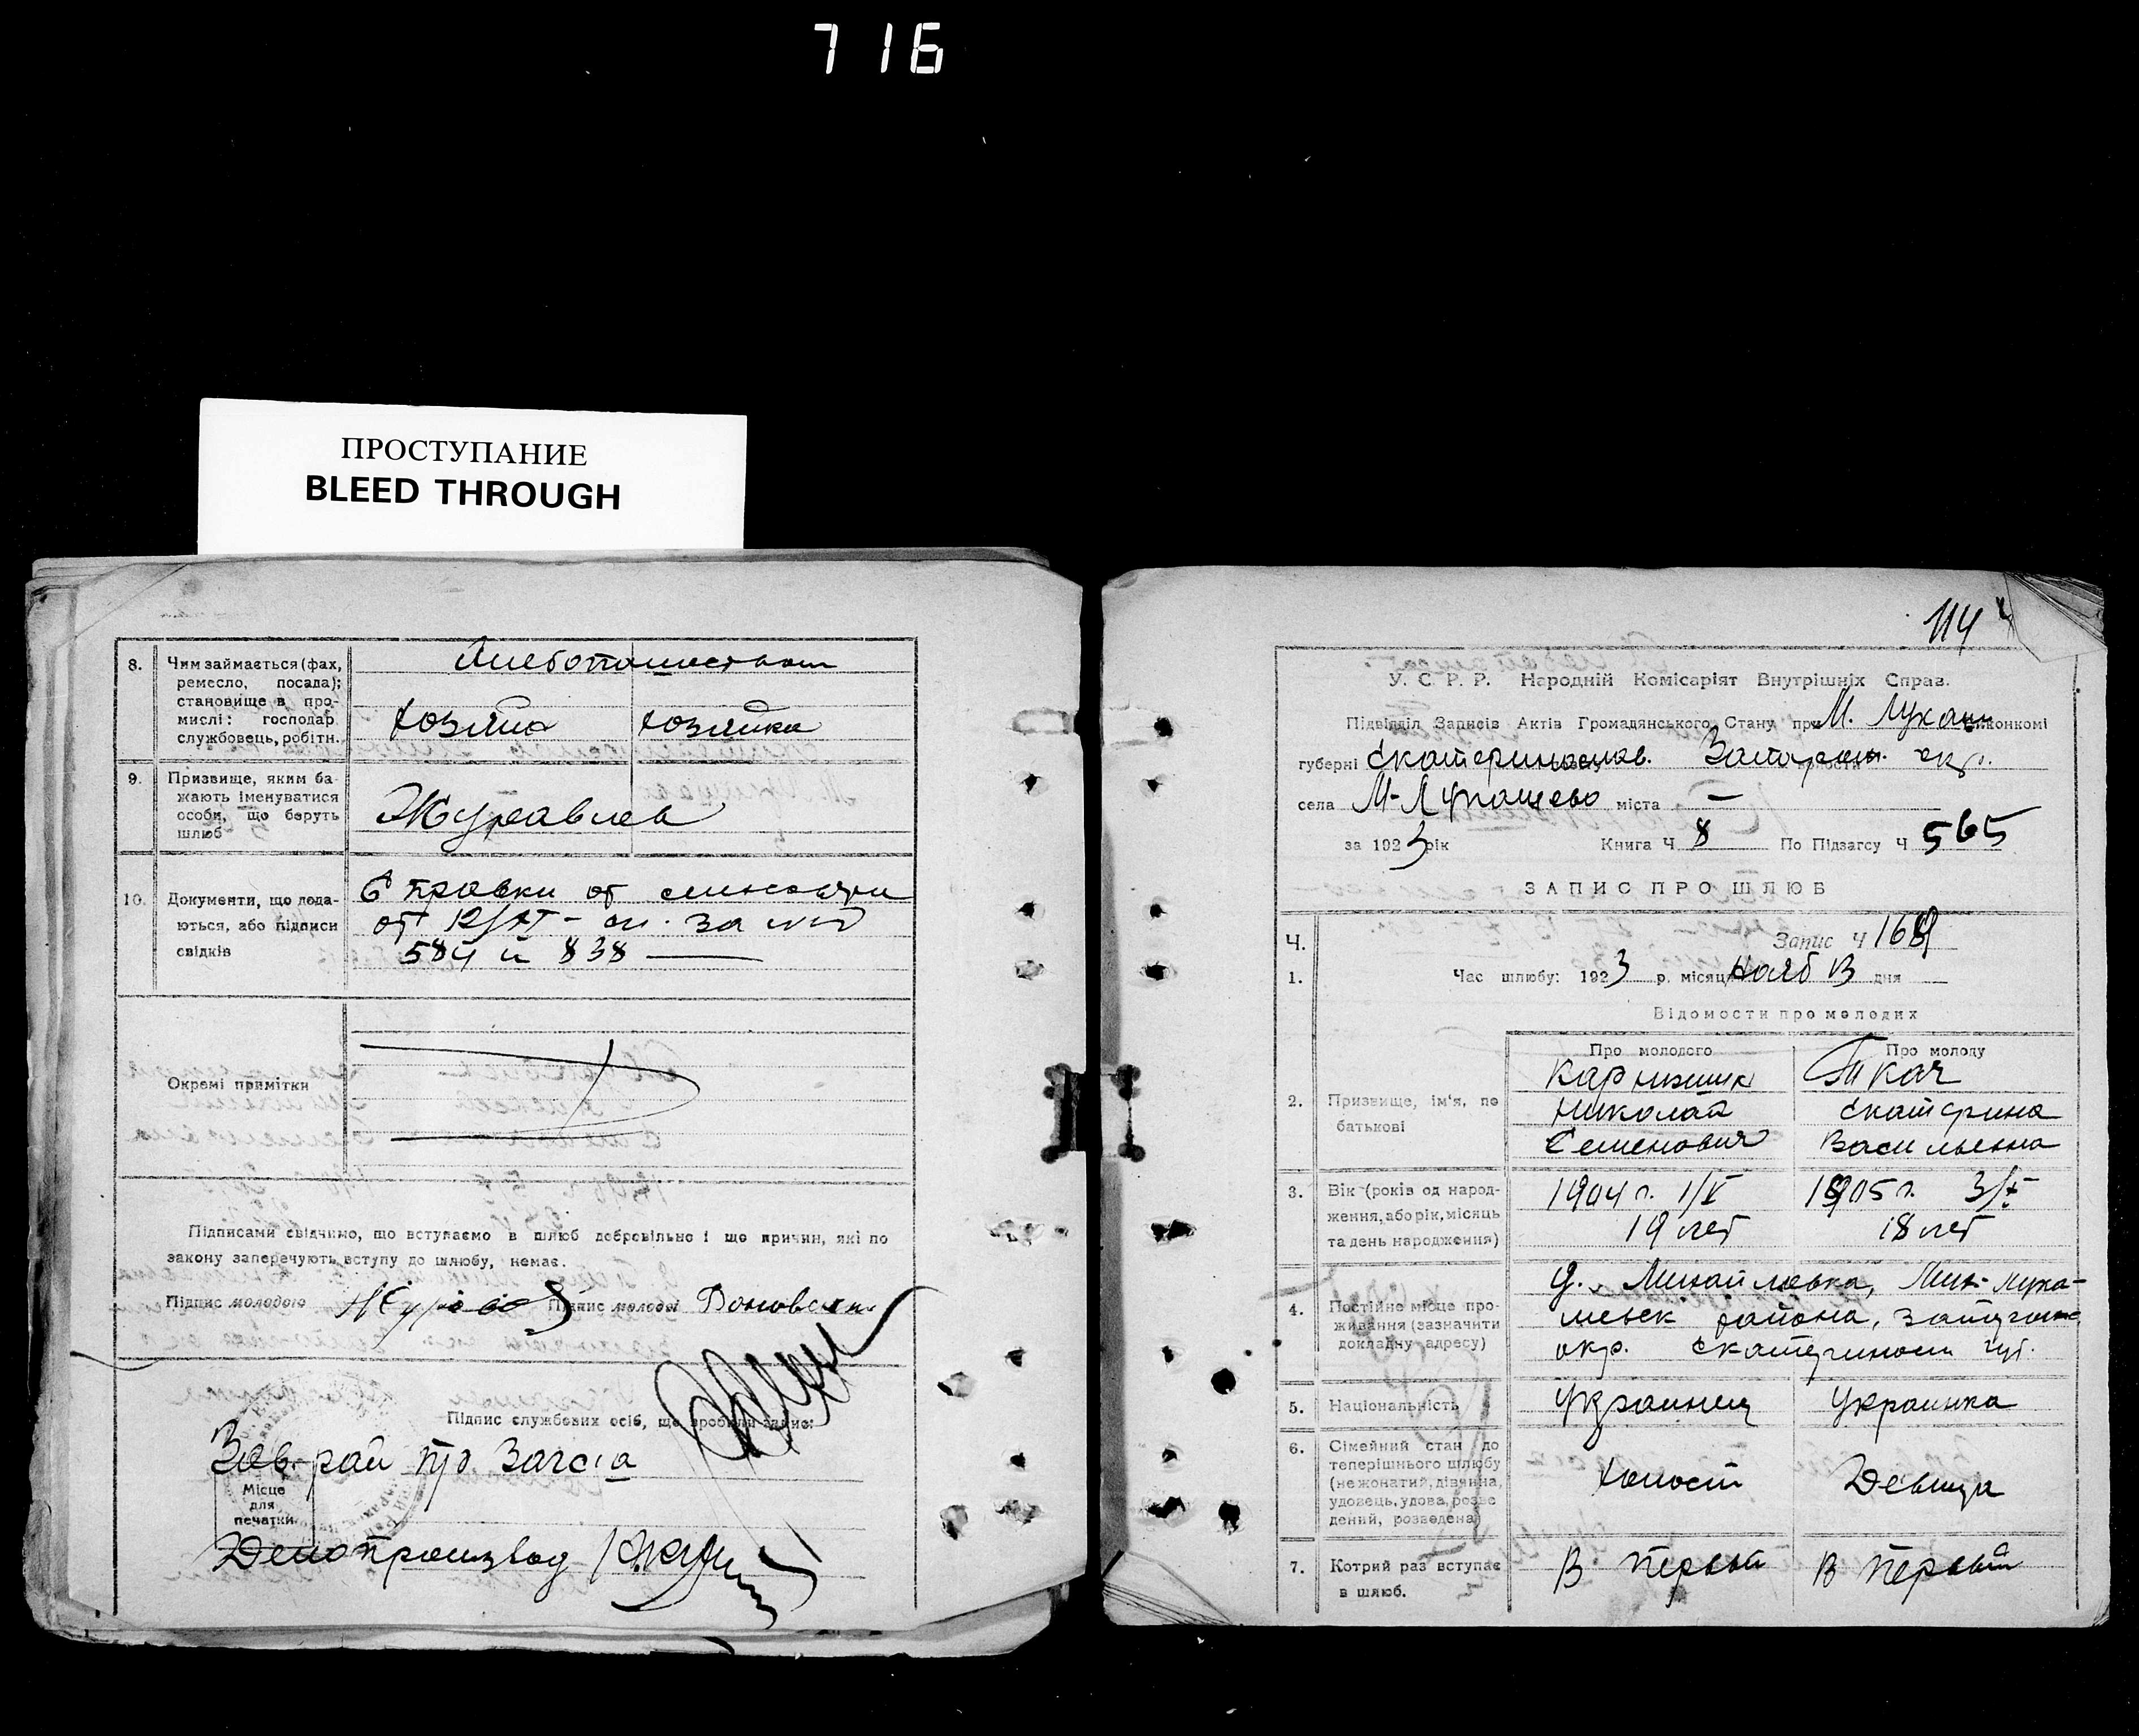 716
ПРОСТУПАНИЕ
BLEED THROUGH
8.
Чим займається (фах,
ремесло, посада);
становище в про-
мислі: господар
службовець, робітн.
Хлебопашеством
хозяин хозяйка
9.
Призвище, яким ба-
жають іменуватися
особи, що беруть
шлюб
Журавлев
10.
Документи, що пода-
ються, або підписи
свідків
Справки от
от 12/XI - за №№
584 и 838
Окремі примітки
Підписами свідчимо, що вступаємо в шлюб добровільно і що причин, які по
закону заперечують вступу до шлюбу, немає.
Підпис молодого Підпис молодої
Підпис службових осіб, що зробили запис:
Зав. рай
Місце
для
печатки
Делопроизвод
114
У. С. Р. Р. Народній Комісаріят Внутрішніх Справ.
Підвідділ Записів Актів Громадянського Стану при М. Лукаш виконкомі
губерні Екатеринослав. Запорож. окр.
села М-Лукашево міста —
за 1923 рік Книга Ч 8 По Підзагсу Ч 565
ЗАПИС ПРО ШЛЮБ
Ч. Запис Ч
1. Час шлюбу: 1923 р. місяця Нояб 13 дня
Відомости про молодих
Про молодого Про молоду
2.
Призвище, ім'я, по
батькові
Ткач
Николай Екатерина
Семенович Васильевна
3.
Вік (років од народ-
ження, або рік, місяць
та день народження)
1904 г. 1/V 1905 г.
19 лет 18 лет
4.
Постійне місце про-
живання (зазначити
докладну адресу)
д. Михайловка,
района,
окр. губ.
5. Національність Украинец Украинка
6.
Сімейний стан до
теперішнього шлюбу
(нежонатий, дівчина,
удовець, удова, розве
дений, розведена)
холост Девица
7.
Котрий раз вступає
в шлюб.
В первый В первый